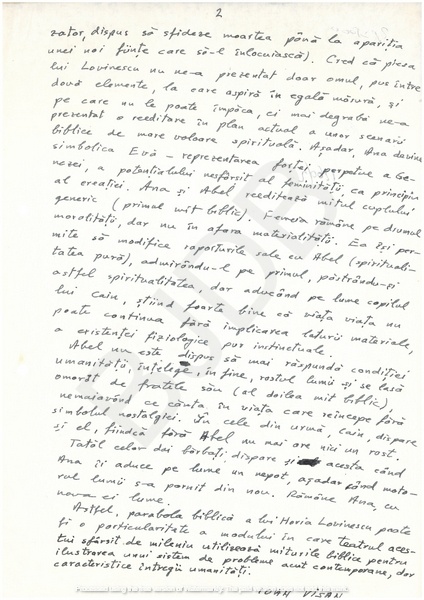 2
zator, dispus să sfideze moartea până la apariția
unei noi ființe care să-l înlocuiască). Cred că piesa
lui Lovinescu nu ne-a prezentat doar omul, pus între
două elemente, la care aspiră în egală măsură, și
pe care nu le poate împăca, ci mai degrabă ne-a
prezentat o reeditare în plan actual a unor scenarii
biblice de mare valoare spirituală. Așadar, Ana devine
simbolica Evă - reprezentarea forței perpetue a Ge-
nezei, a potențialului nesfârșit al feminității, ca principiu
al creației. Ana și Abel reeditează mitul cuplului
generic (primul mit biblic). Femeia rămâne pe drumul
moralității, dar nu în afara materialității. Ea își per-
mite să modifice raporturile sale cu Abel (spirituali-
tatea pură), admirându-l pe primul, păstrându-și
astfel spiritualitatea, dar aducând pe lume copilul
lui Cain, știind foarte bine că viața viața nu
poate continua fără implicarea laturii materiale,
a existenței fiziologice pur instinctuale.
Abel nu este dispus să mai răspundă condiției
umanității, înțelege, în fine, rostul lumii și se lasă
omorât de fratele său (al doilea mit biblic),
nemaiavând ce căuta în viața care reîncepe fără
simbolul nostalgiei. În cele din urmă, Cain, dispare
și el, fiindcă fără Abel nu mai are nici un rost.
Tatăl celor doi bărbați dispare și acesta când
Ana îi aduce pe lume un nepot, așadar când moto-
rul lumii s-a pornit din nou. Rămâne Ana, cu
noua ei lume.
Astfel, parabola biblică a lui Horia Lovinescu poate
fi o particularitate a modului în care teatrul aces-
tui sfârșit de mileniu utilizează miturile biblice pentru
ilustrarea unui sistem de probleme acut contemporane, dar
caracteristice întregii umanități.
IOAN VIȘAN